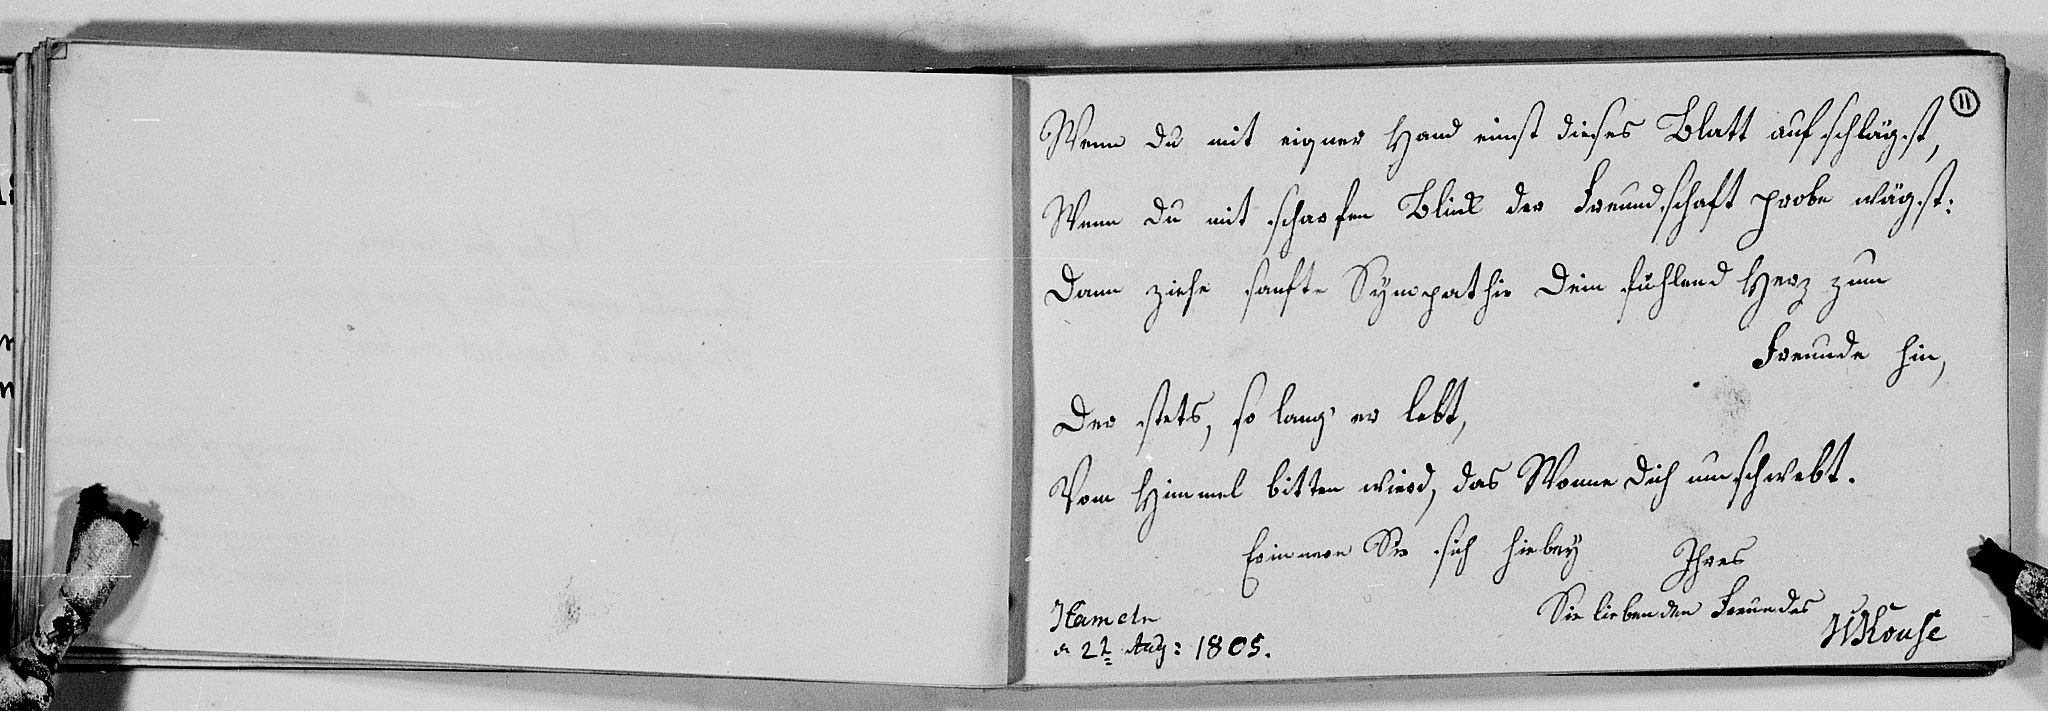 11
Wenn du mit eigner Hand einst dieses Blatt aufschlägst,
Wenn du mit scharfen Blick der Freundschaft probe wägst:
Dann ziehe sanfte Sympathie Dein fühlend Herz zum
Freunde hin,
Der stets, so lang' er lebt,
Vom Himmel bitten wierd, das Wonne Dich umschwebt.
Erinnern Sie sich hiebey Ihres
Sie liebenden Freundes
Hameln
Aug: 1805.